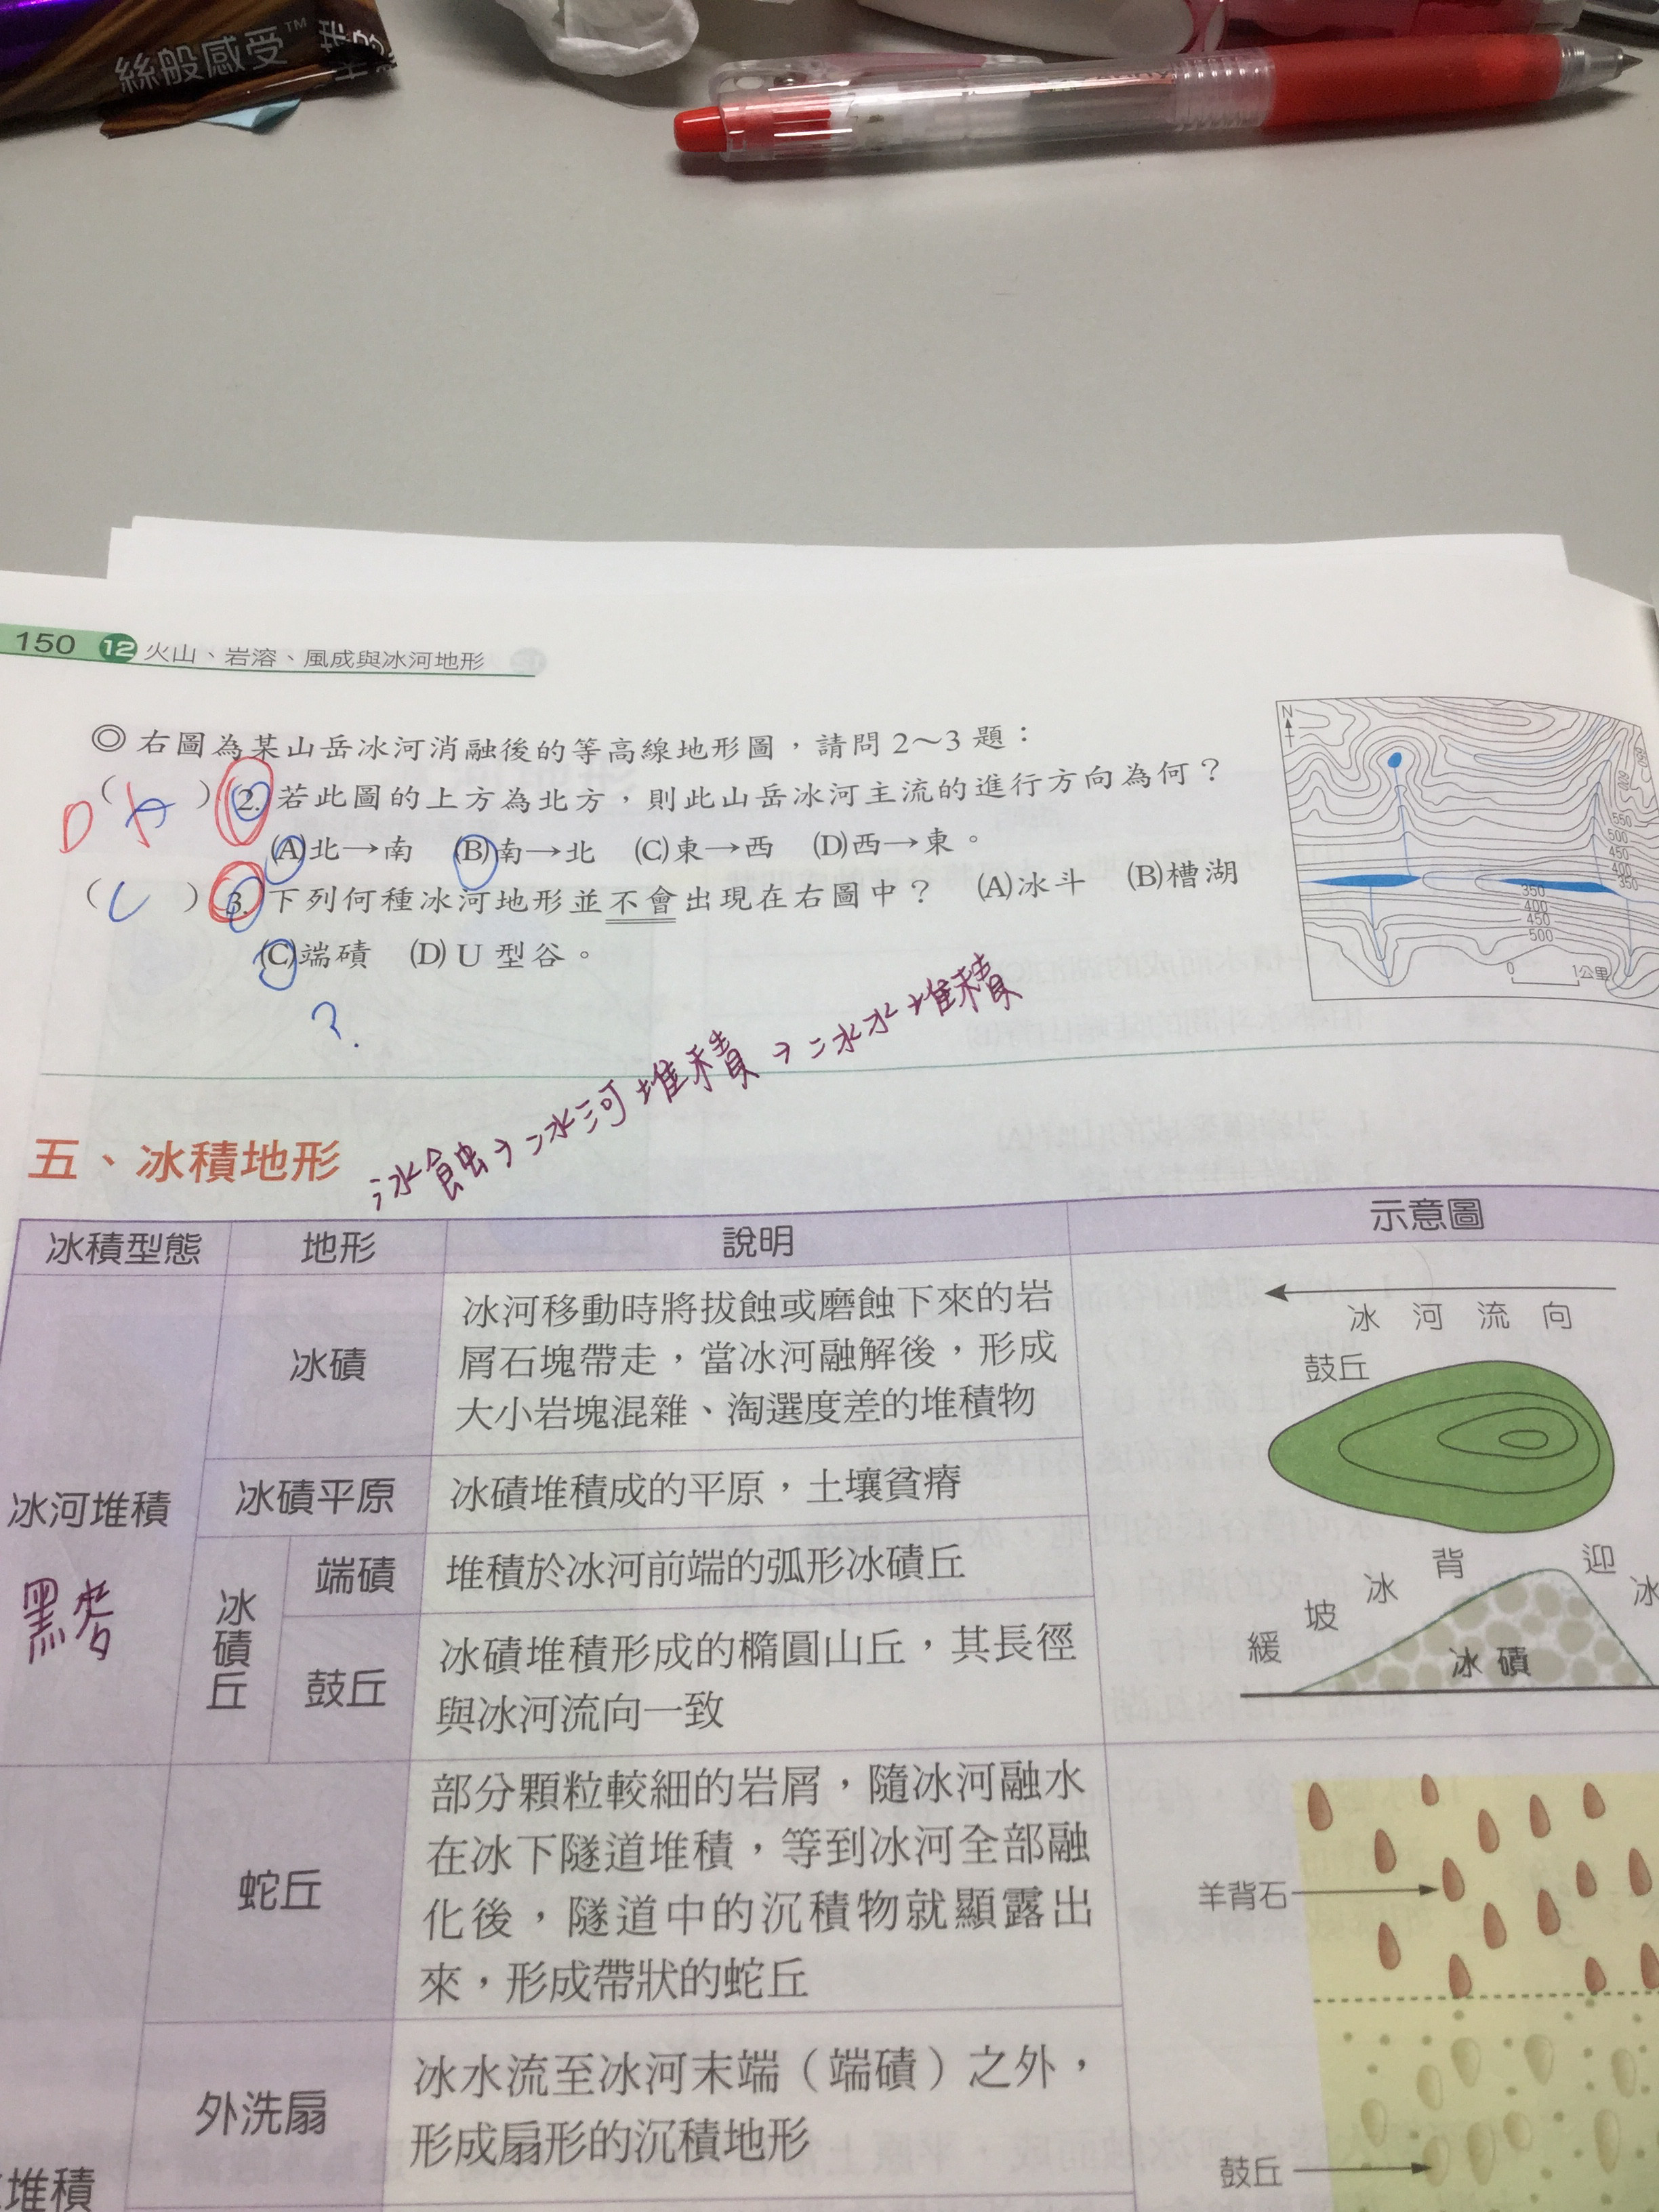 絲般感受™
150 12 火山、岩溶、風成與冰河地形
◎右圖為某山岳冰河消融後的等高線地形圖，請問2～3題：
D （A）2. 若此圖的上方為北方，則此山岳冰河主流的進行方向為何？
(A)北→南 (B)南→北 (C)東→西 (D)西→東。
（C）3. 下列何種冰河地形並不會出現在右圖中？ (A)冰斗 (B)槽湖
(C)端磧 (D)U型谷。
?
N
550
500
450
400
350
350
400
450
500
0 1公里
五、冰積地形
冰蝕→冰河堆積→冰水堆積
冰積型態 地形 說明 示意圖
冰河堆積
黑麥
冰磧
冰河移動時將拔蝕或磨蝕下來的岩
屑石塊帶走，當冰河融解後，形成
大小岩塊混雜、淘選度差的堆積物
冰磧平原
冰磧堆積成的平原，土壤貧瘠
冰磧丘
端磧
堆積於冰河前端的弧形冰磧丘
鼓丘
冰磧堆積形成的橢圓山丘，其長徑
與冰河流向一致
冰河流向
鼓丘
緩坡冰背 迎冰
冰磧
蛇丘
部分顆粒較細的岩屑，隨冰河融水
在冰下隧道堆積，等到冰河全部融
化後，隧道中的沉積物就顯露出
來，形成帶狀的蛇丘
羊背石
外洗扇
冰水流至冰河末端（端磧）之外，
形成扇形的沉積地形
堆積
鼓丘